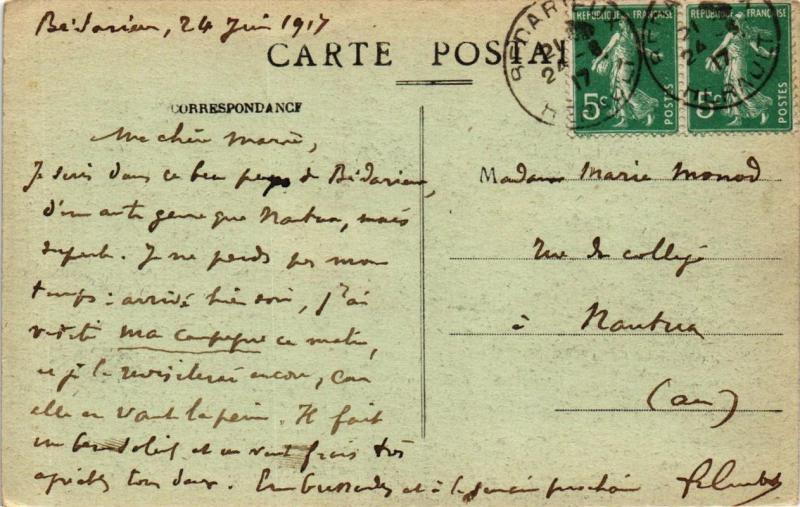 Bédarieux, 24 Juin 1917
CARTE POSTALE
CORRESPONDANCE
Ma chère Marie,
Je suis dans ce beau pays de Bédarieux,
d'un autre genre que Nantua, mais
superbe. Je ne perds pas mon
temps : arrivé hier soir, j'ai
visité ma campagne ce matin,
et je la revisiterai encore, car
elle en vaut la peine. Il fait
un beau soleil et un vent frais très
agréables tous deux. Embrassades et à la semaine prochaine
Madame Marie Monod
Rue du collège
à Nantua
(Ain)
REPUBLIQUE FRANÇAISE
5c
POSTES
REPUBLIQUE FRANÇAISE
5c
POSTES
BEDARIEUX
24 -6
17
HERAULT
24
17
HERAULT